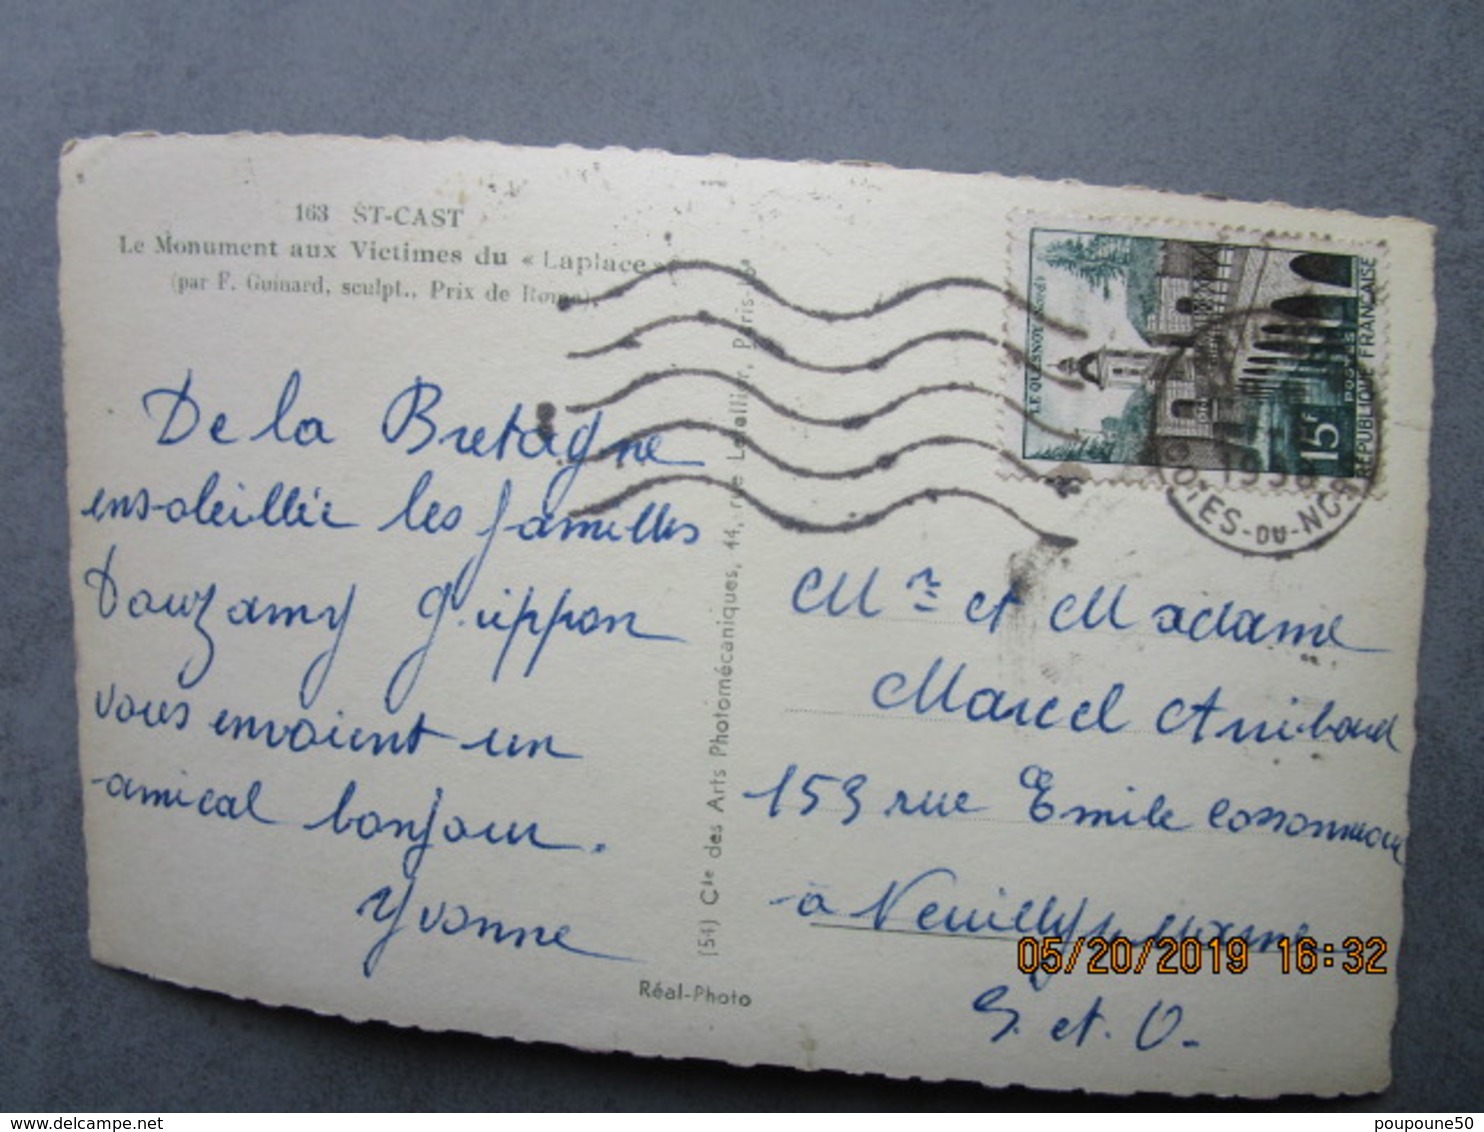 163 ST-CAST
Le Monument aux Victimes du « Laplace »
(par F. Guinard, sculpt., Prix de Rome).
De la Bretagne
ensoleillée les familles
Douzamy Grippon
vous envoient un
amical bonjour.
Yvonne
Réal-Photo
(54) Cie des Arts Photomécaniques, 44, rue Letellier, Paris-15e
LE QUESNOY (NORD)
15F
POSTES
REPUBLIQUE FRANÇAISE
1958
COTES-DU-NORD
Mr et Madame
Marcel Anibaud
153 rue Emile Cossonneau
à Neuilly s Marne
S. et O.
05/20/2019 16:32
poupoune50